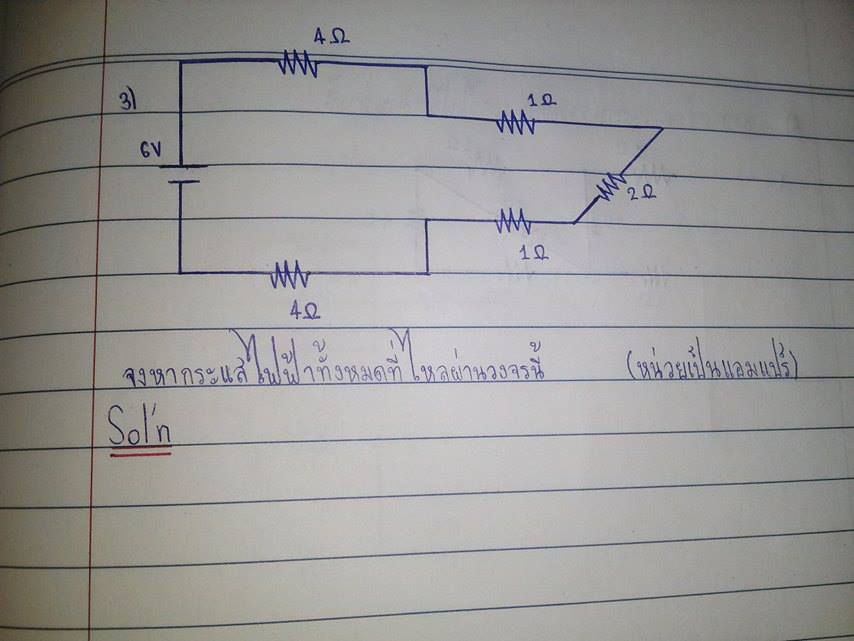 4Ω
3)
1Ω
6V
2Ω
1Ω
4Ω
จงหากระแสไฟฟ้าทั้งหมดที่ไหลผ่านวงจรนี้ (หน่วยเป็นแอมแปร์)
Sol'n